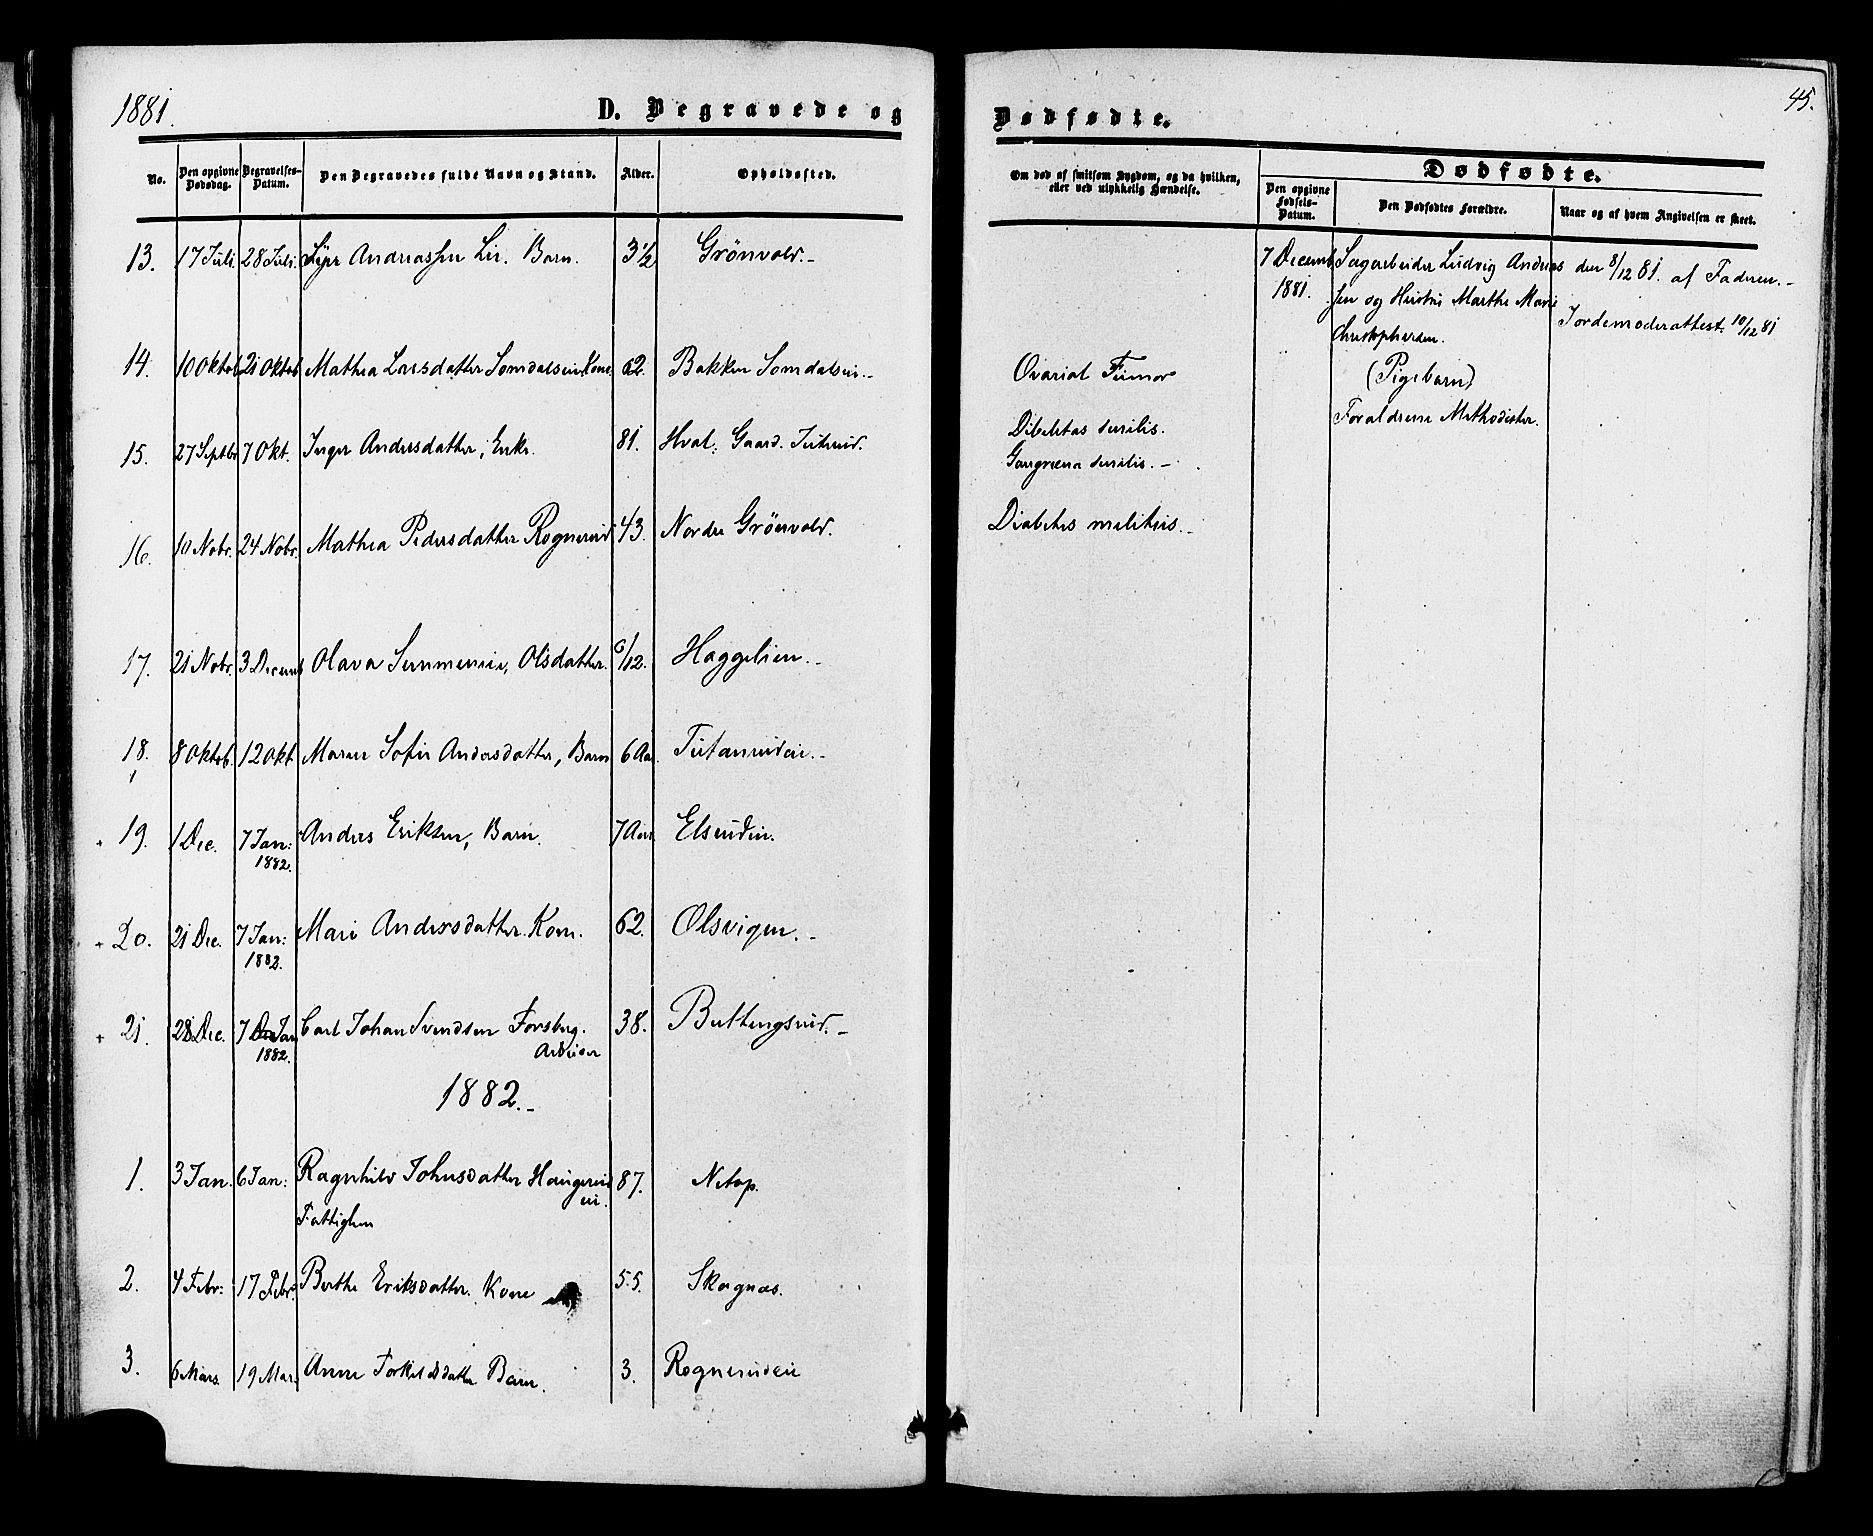 1881.
D. Begravede og
Dødfødte.
45.
No.
Den opgivne Dødsdag.
Begravelses-Datum.
Den Begravedes fulde Navn og Stand.
Alder.
Opholdssted.
Om død af smitsom Sygdom, og da hvilken, eller ved ulykkelig Hændelse.
Dødfødte.
Den opgivne Fødsels-Datum.
Den Dødfødtes Forældre.
Naar og af hvem Angivelsen er skeet.
13. 17 Juli. 28 Juli. Andreassen Lie. Barn. 3 1/2 Grönvold.-
7 Decemb 1881.
Sagarbeider Ludvig Andreas
sen og Hustru Marthe Marie
Christophersen.
(Pigebarn)
Forældrene Methodister.
den 8/12 81. af Faderen.-
Jordemoderattest 10/12 81
14. 10 Oktob 21 Oktob Mathea Larsdatter Somdalseie, Kone. 62. Bakken Somdalseie.- Ovarial Tumor
15. 27 Septbr 7 Okt. Inger Andersdatter, Enke. 81. Hval: Gaard. Diabetes senilis.
Gangræna senilis.-
16. 10 Nobr. 24 Nobr. Mathea Pedersdatter Rognerud 43. Nordre Grönvold. Diabetes melitus.-
17. 21 Nobr. 3 Decemb Olava Olsdatter. 6/12. Haggelien.-
18. 8 Oktob. 12 Okt Maren Sofie Andersdatter, Barn 6 Aar. -
19. 1 Dec. 7 Jan: 1882. Anders Eriksen, Barn. 7 Aar Elsrudeie.
20. 21 Dec. 7 Jan: 1882. Mari Andersdatter. Kone. 62. Olsvigen.-
21. 28 Dec. 7 Jan 1882. Carl Johan Svendsen Forsberg. 38. Buttingsrud.-
Arbeider
1882.-
1. 3 Jan. 6 Jan: Ragnhild Johnsdatter Haugerud 87. Netop.
eie.
Fattiglem
2. 4 Febr: 17 Febr. Berthe Eriksdatter. Kone 55. Skagnæs.
3. 6 Mars. 19 Mar. Anne Torkildsdatter Barn. 3. Rognerudeie